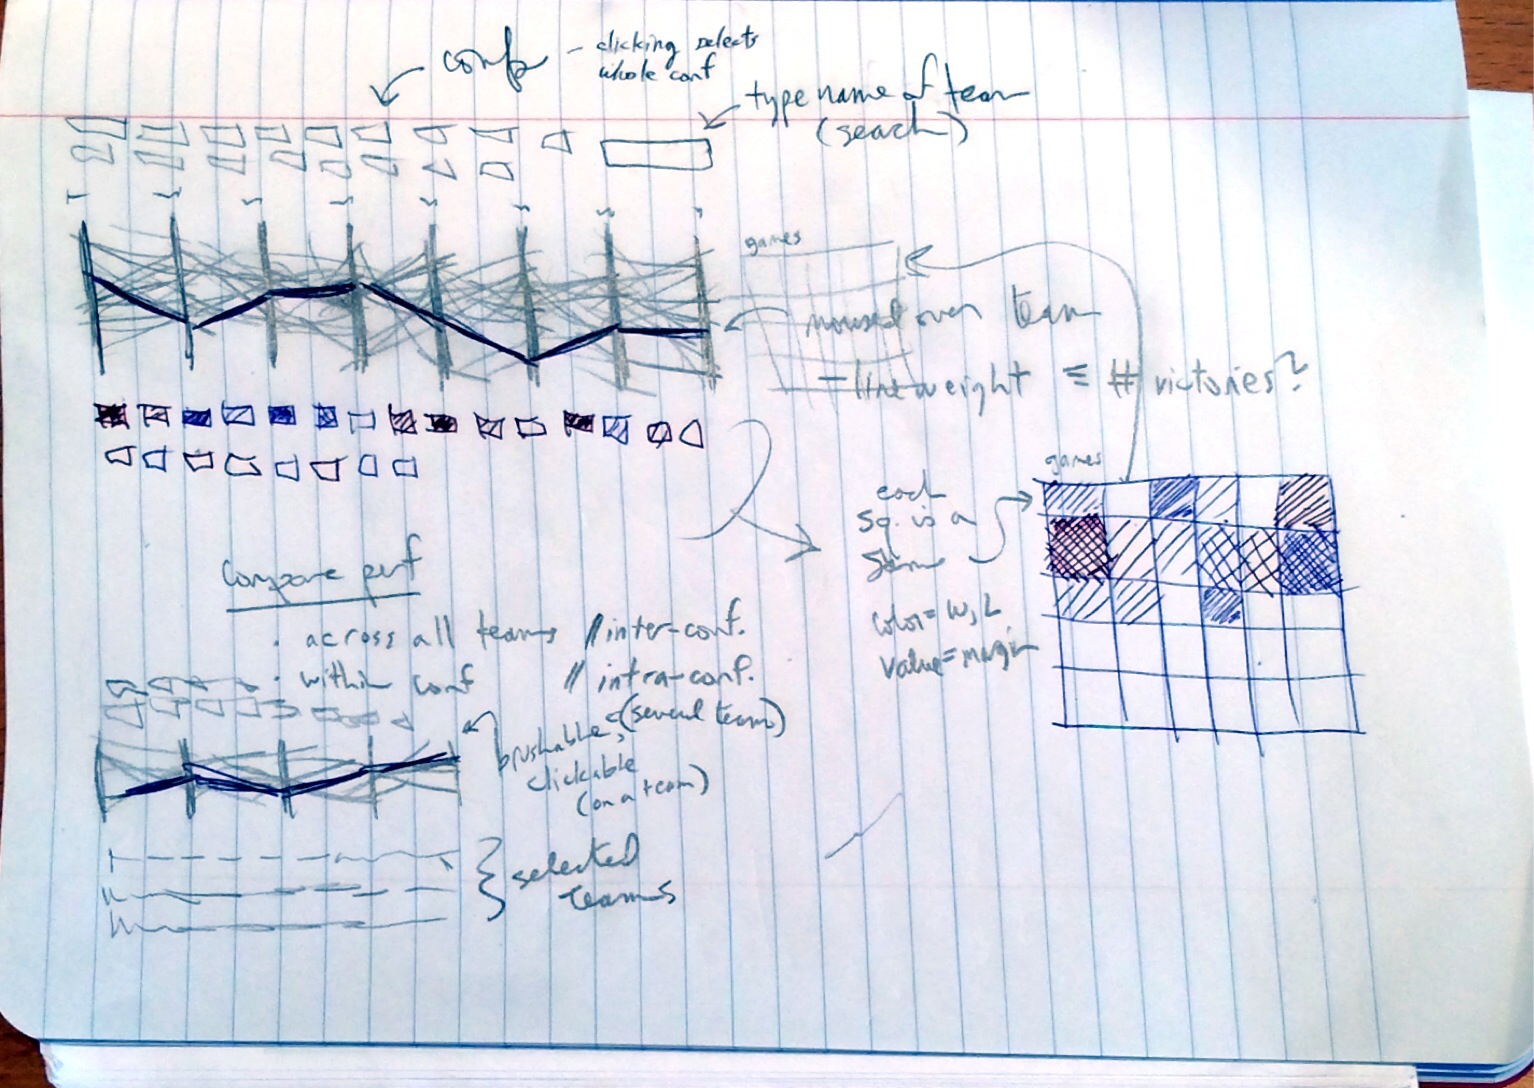 conf
- clicking selects
whole conf
type name of team
(search)
games
moused over team
= line weight = # victories?
games
each
sq. is a
game
color = W, L
value = margin
Compare perf
· across all teams // inter-conf.
· within conf // intra-conf.
brushable, (several team)
clickable
(on a team)
selected
teams